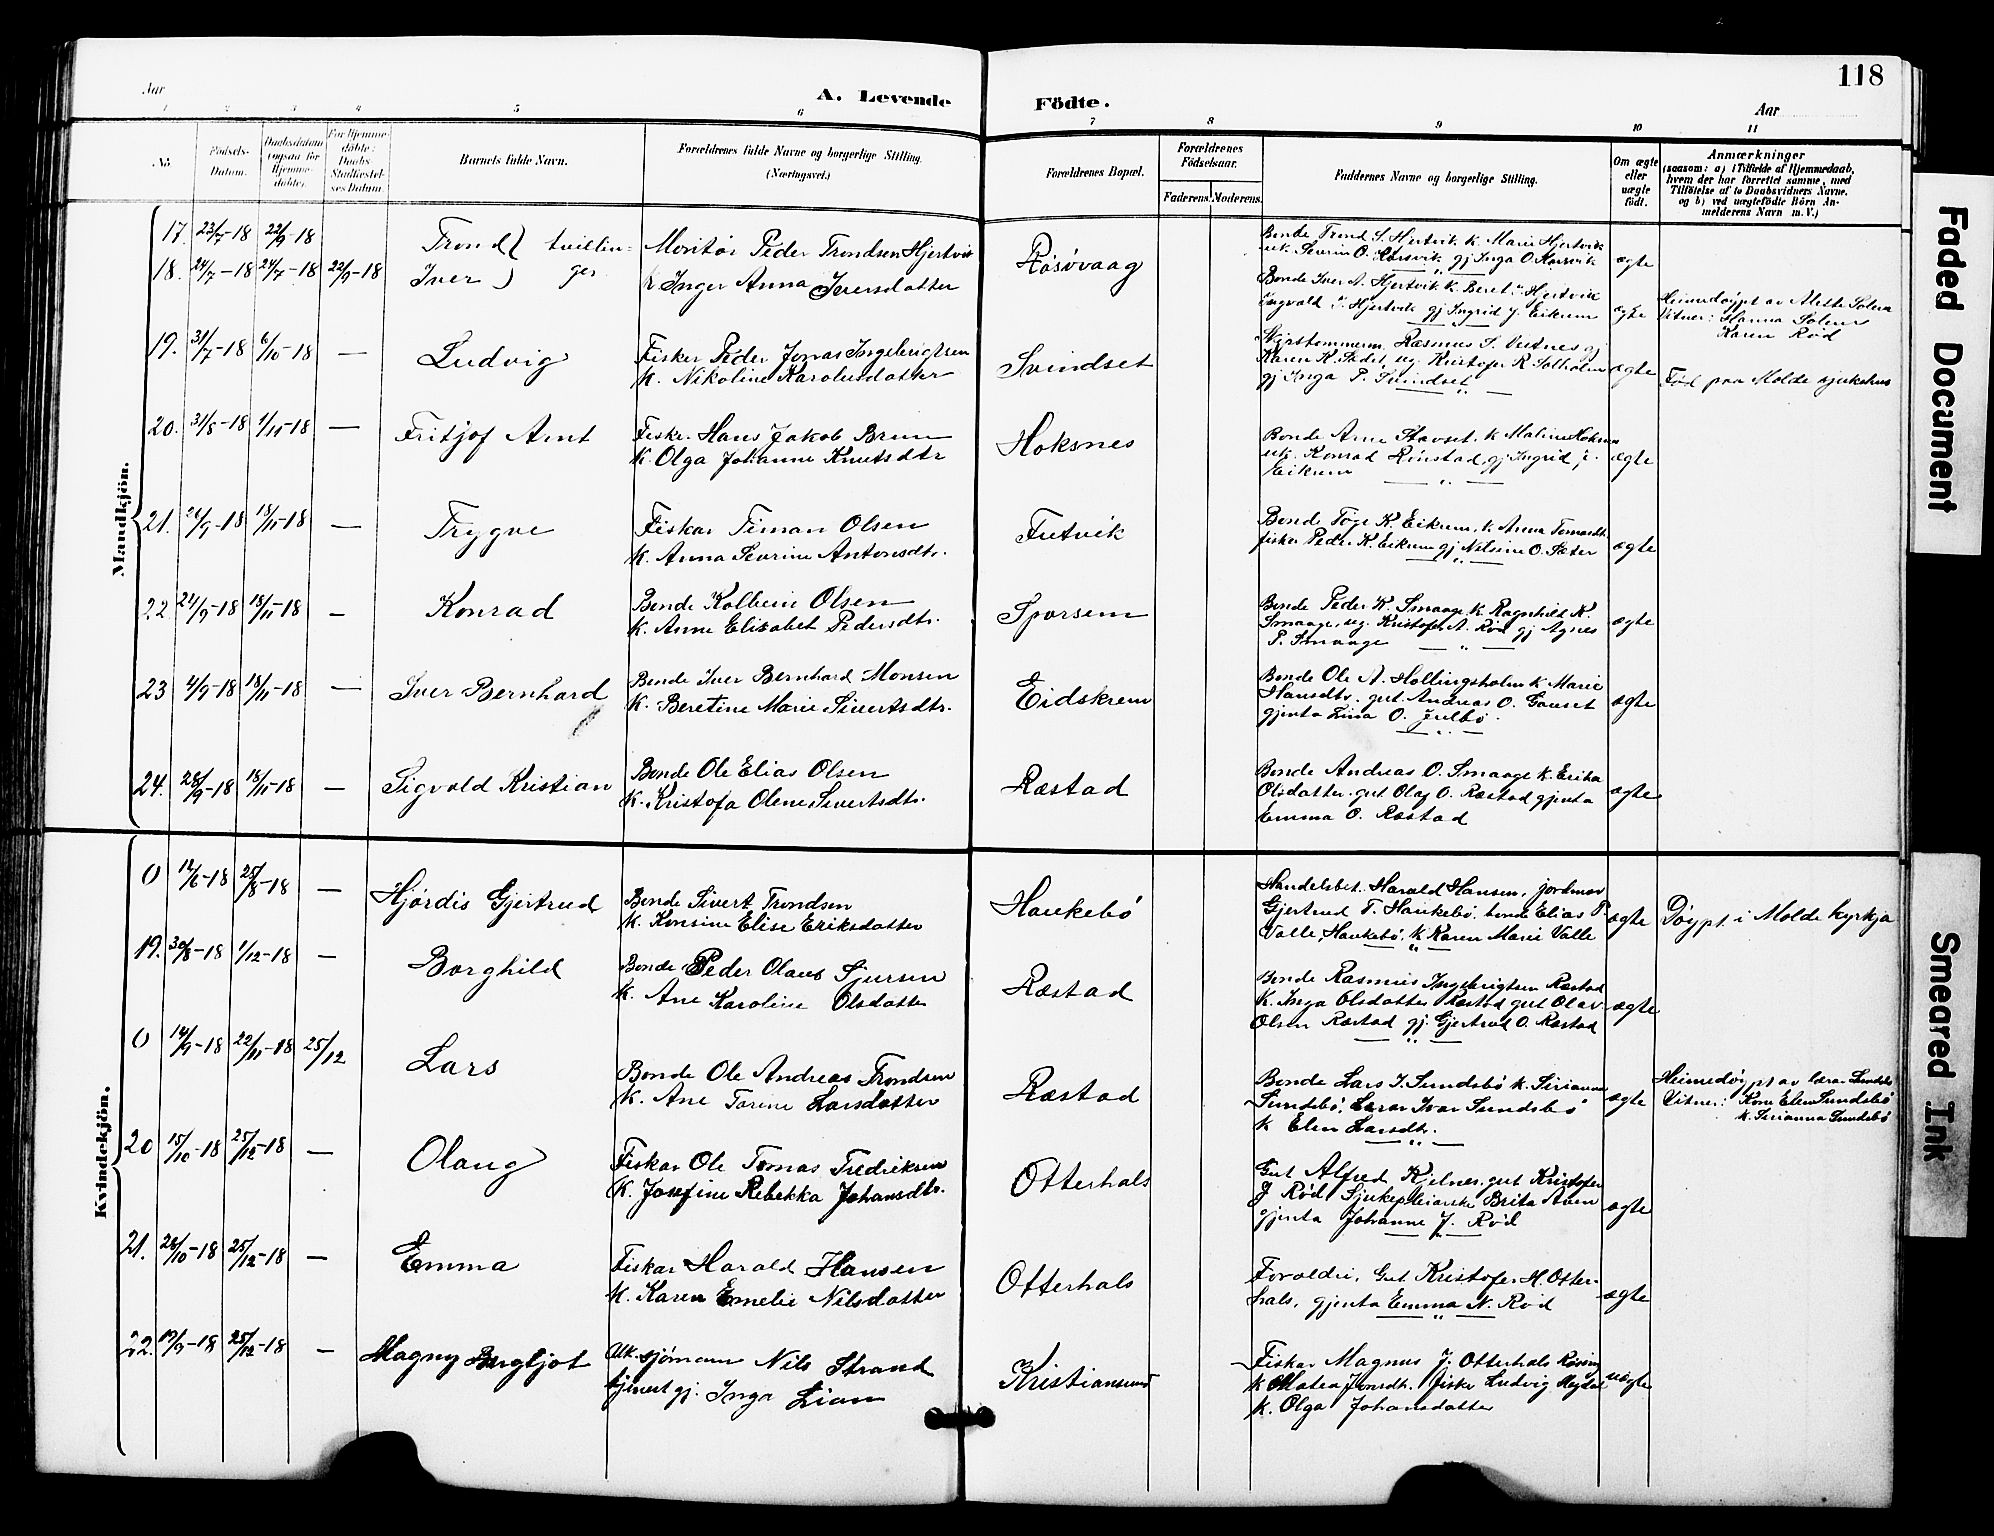 118
Aar
A. Levende Födte.
Aar
1 2 3 4 5 6 7 8 9 10 11
No Födsels-Datum. Daabsdatum (ogsaa for Hjemmedöbte). For Hjemmedöbte: Daabs Stadfæstelses Datum. Barnets fulde Navn. Forældrenes fulde Navne og borgerlige Stilling. (Næringsvei.) Forældrenes Bopæl. Forældrenes Födselsaar. Faderens. Moderens. Faddernes Navne og borgerlige Stilling. Om ægte eller uægte födt. Anmærkninger
(saasom: a) i Tilfælde af Hjemmedaab,
hvem der har forrettet samme, med
Tilföielse af to Daabsvidners Navne.
og b) ved uægtefödte Börn Anmelderens Navn m. V.)
Mandkjön.
17. 23/7-18 22/9-18 Trond } tvillin-
18. 24/7-18 24/7-18 22/9-18 Iver } ger
Montør Peder Trondsen Hjertvik
k Inger Anna Iversdatter
Røsøvaag
Bonde Trond S. Hjertvik k. Marie Hjertvik
uk Severin O. Harsvik gj Inga O. Harsvik
ægte
Bonde Iver A. Hjertvik k. Beret Hjertvik
Ingvald Hjertvik gj Ingrid J. Eikrem
ægte
Heimedøypt av Alette Solem
Vitner: Hanna Solem
Karen Rød
19. 31/7-18 6/10-18 — Ludvig
Fisker Peder Jonas Ingebrigtsen
k. Nikoline Karolusdatter
Svindset
Rasmus S. Vestnes gj
Karen K. Sødst, ug. Kristofer R Solholm
gj Inga P. Svindset
ægte
Fød paa Molde sjukehus
20. 31/8-18 1/11-18 — Fritjof Arnt
Fisker Hans Jakob Brun
k. Olga Johanne Knutsdtr
Hoksnes
Bonde Arne Stavset. k Maline Hoksnes
uk. Konrad Rønstad, gj Ingrid J.
Eikrem
ægte
21. 26/9-18 18/11-18 — Trygve
Fiskar Timan Olsen
k. Anna Severine Antonsdtr.
Futvik
Bonde Tøge K. Eikrem, k. Anna Tomasdtr.
fisker Peder K. Eikrem gj Nilsine O. Sæter
ægte
22 24/9-18 18/11-18 — Konrad
Bonde Kolbein Olsen
k. Anne Elisabet Pedersdtr.
Sporsem
Bonde Peder K. Smaage k. Ragnhild K.
Smaage, ug. Kristofer A. Rød gj Agnes
P. Smaage
ægte
23 4/9-18 18/11-18 — Iver Bernhard
Bonde Iver Bernhard Monsen
k. Beretine Marie Sivertsdtr.
Eidskrem
Bonde Ole A. Hollingsholm k. Marie
Hansdtr. gut. Andreas O. Gauset
gjenta Lina O. Julbø.
ægte
24. 28/9-18 18/11-18 — Sigvald Kristian
Bonde Ole Elias Olsen
k. Kristofa Oline Sivertsdtr.
Ræstad
Bonde Andreas O. Smaage k. Erika
Olsdatter. gut Olaf O. Ræstad gjenta
Emma O. Ræstad
ægte
Kvindekjön.
0 12/6-18 25/8-18 — Hjørdis Gjertrud
Bonde Sivert Trondsen
k. Konsine Elise Eriksdatter
Haukebø
Handelsbet. Harald Hansen, jordmor
Gjertrud T. Haukebø, bonde Elias P.
Valle, Haukebø, k Karen Marie Valle
ægte
Døypt i Molde kyrkja
19. 30/8-18 1/12-18 — Borghild
Bonde Peder Olaus Sjursen
k. Ane Karoline Olsdatter
Ræstad
Bonde Rasmus Ingebrigtsen Ræstad
k. Inga Olsdatter Ræstad gut Olav
Olsen Ræstad gj. Gjertrud O. Ræstad
ægte
0 14/9-18 22/11-18 25/12 Lars
Bonde Ole Andreas Trondsen
k. Ane Torine Larsdatter
Ræstad
Bonde Lars I. Sundsbø k. Sirianna
Sundsbø, Lærar Ivar Sundsbø
k Elen Larsdtr.
ægte
Heimedøypt av lærar Sundsbø
Vitner: Kona Elen Sundsbø
k. Sirianna Sundsbø
20 15/10-18 25/12-18 — Olaug
Fiskar Ole Tomas Fredriksen
k. Josefine Rebekka Johansdtr.
Otterhals
Gut Alfred Kjelnes, gut Kristofer
J Rød Sjukepleiarske Brita Aven
gjenta Johanne J. Rød
ægte
21. 26/10-18 25/12-18 — Emma
Fiskar Harald Hansen
k. Karen Emelie Nilsdatter
Otterhals
Foreldri, Gut Kristofer H. Otter-
hals, gjenta Emma N. Rød
ægte
22. 19/9-18 25/12-18 — Magny Bergljot
Uk. sjømann Nils Strand
tjenestgj. Inga Lian
Kristiansund
Fiskar Magnus J. Otterhals
k Matea Jonsdtr. fisker Ludvig
k. Olga Johansdatter
uægte
Faded Document
Smeared Ink